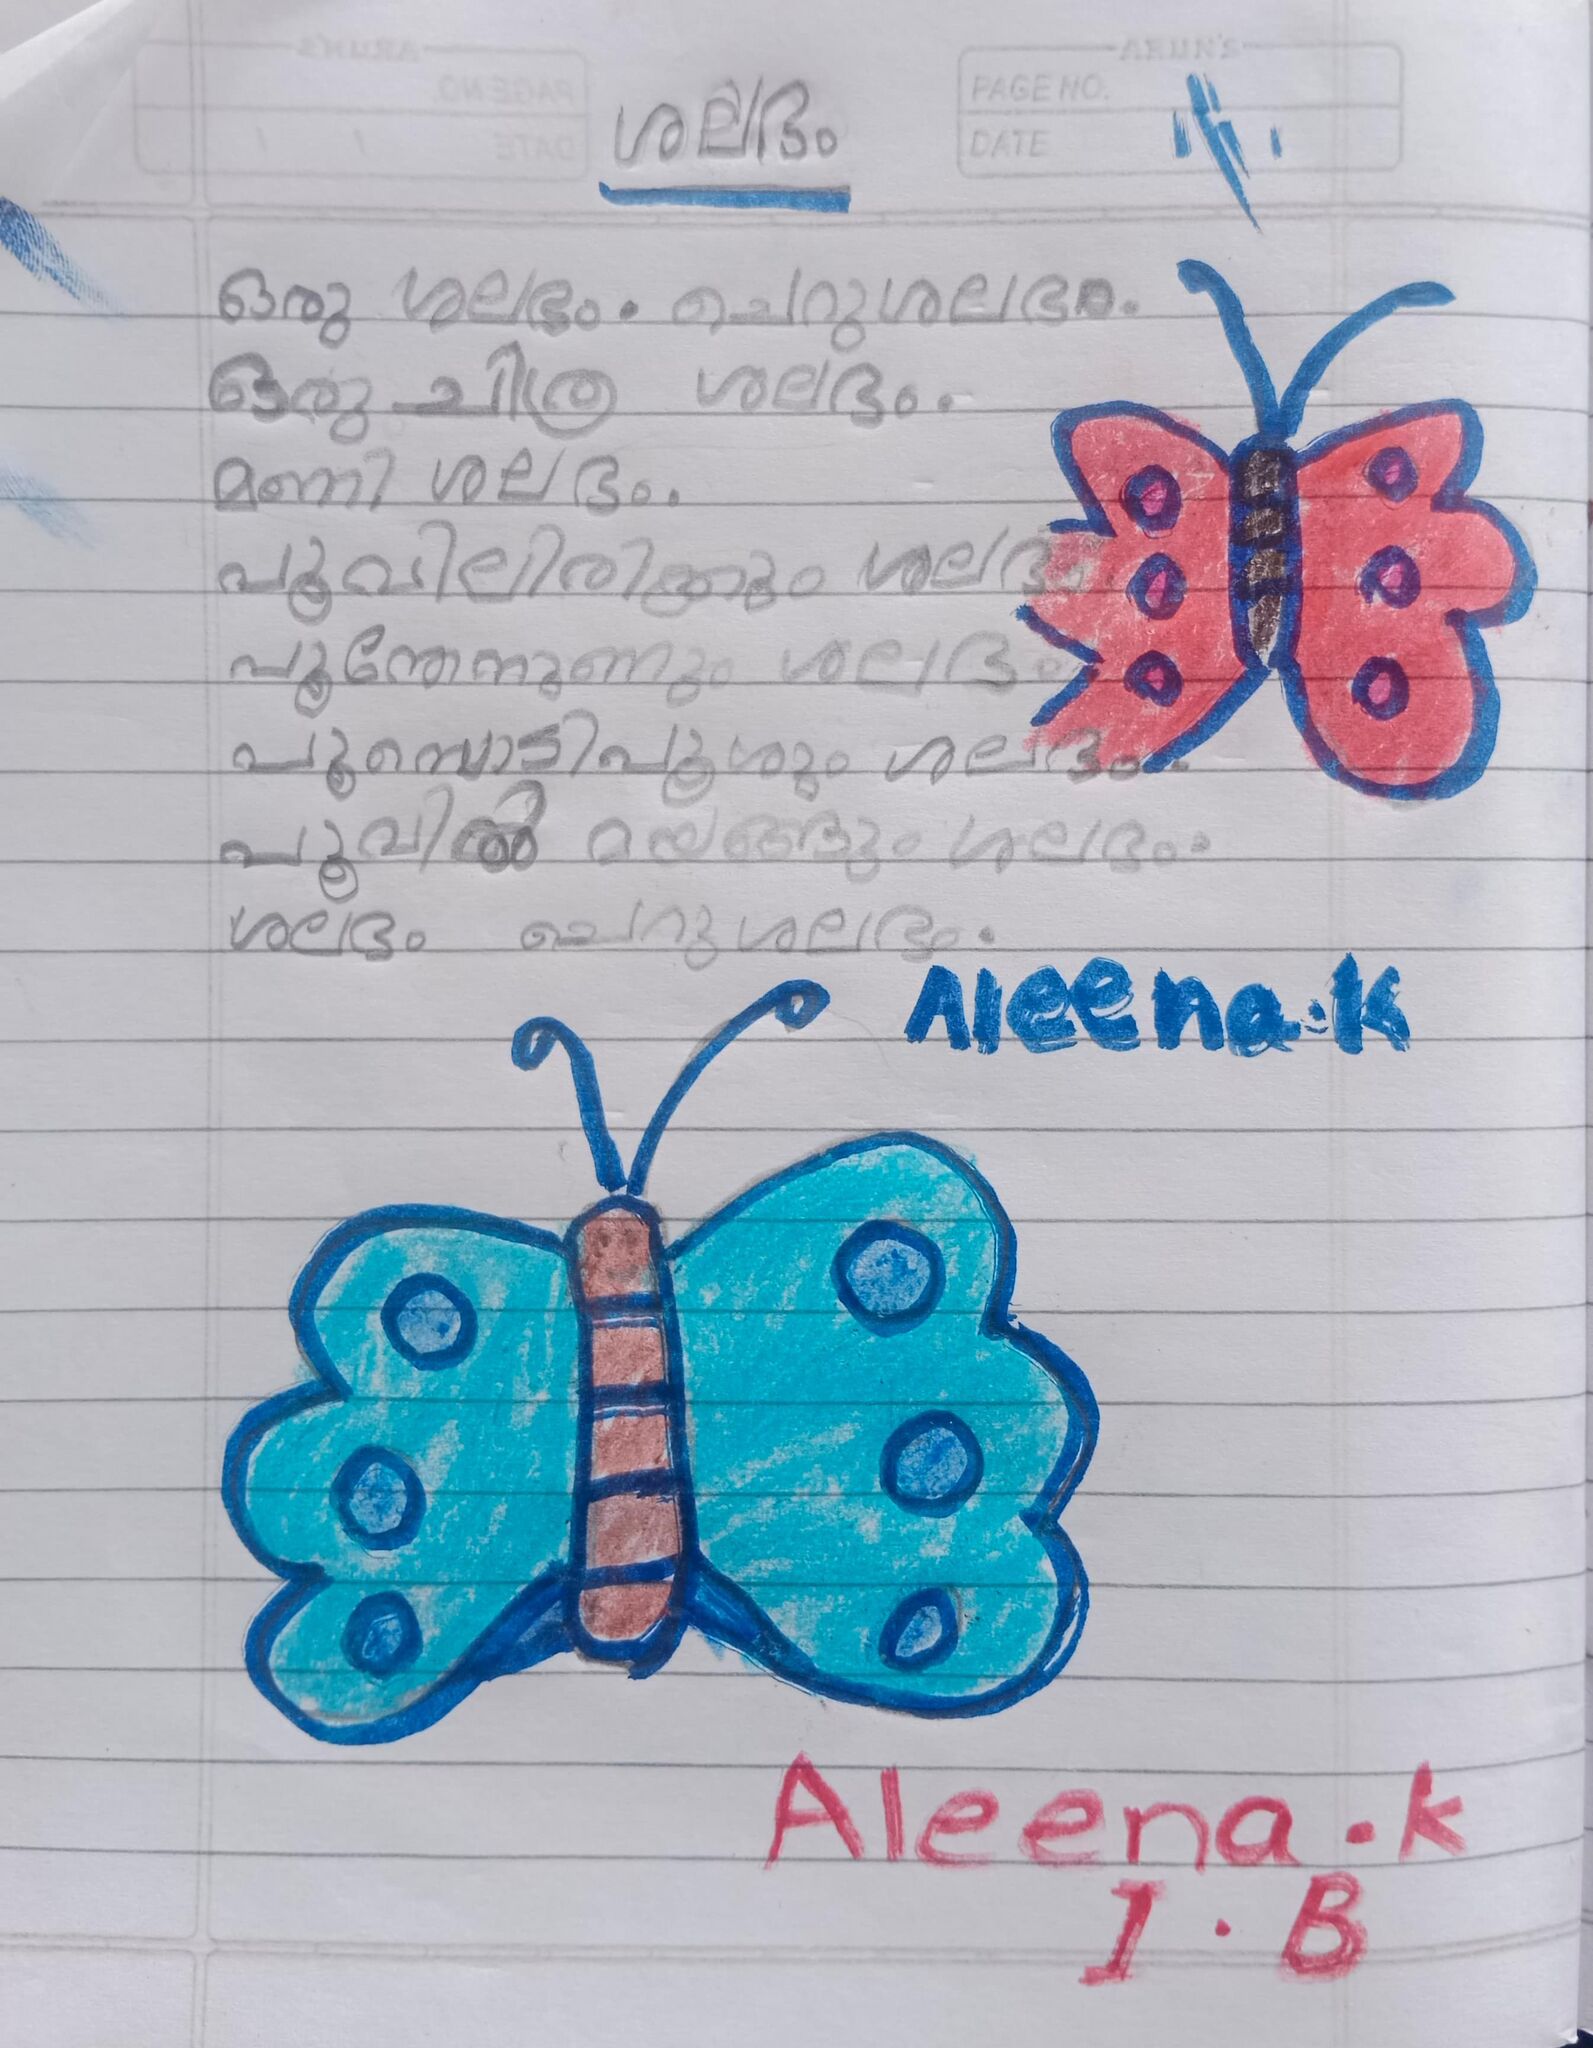 ARUN'S
PAGE NO.
DATE
ശലഭം
ഒരു ശലഭം. ചെറുശലഭം.
ഒരു ചിത്ര ശലഭം.
മണി ശലഭം.
പൂവിലിരിക്കും ശലഭം.
പൂന്തേനുണ്ണും ശലഭം.
പൂമ്പൊടിപൂശും ശലഭം.
പൂവിൽ മയങ്ങും ശലഭം.
ശലഭം ചെറുശലഭം.
Aleena.K
Aleena.K
1.B